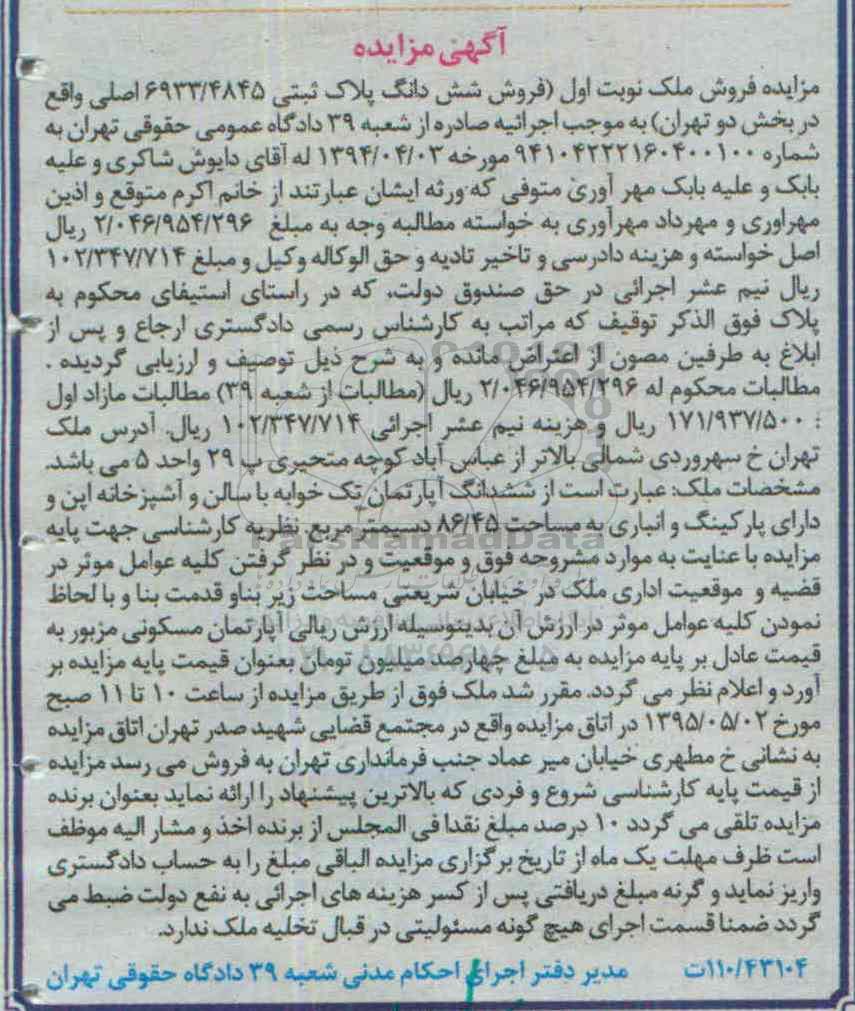 آگهی مزایده
مزایده فروش ملک نوبت اول (فروش شش دانگ پلاک ثبتی ۶۹۳۳/۴۸۴۵ اصلی واقع
در بخش دو تهران) به موجب اجرائیه صادره از شعبه ۳۹ دادگاه عمومی حقوقی تهران به
شماره ۹۴۱۰۴۲۲۲۱۶۰۴۰۰۱۰۰ مورخه ۱۳۹۴/۰۴/۰۳ له آقای دایوش شاکری و علیه
بابک و علیه بابک مهر آوری متوفی که ورثه ایشان عبارتند از خانم اکرم متوقع و اذین
مهراوری و مهرداد مهرآوری به خواسته مطالبه وجه به مبلغ ۲/۰۴۶/۹۵۴/۲۹۶ ریال
اصل خواسته و هزینه دادرسی و تاخیر تادیه و حق الوکاله وکیل و مبلغ ۱۰۲/۳۴۷/۷۱۴
ریال نیم عشر اجرائی در حق صندوق دولت، که در راستای استیفای محکوم به
پلاک فوق الذکر توقیف که مراتب به کارشناس رسمی دادگستری ارجاع و پس از
ابلاغ به طرفین مصون از اعتراض مانده و به شرح ذیل توصیف و ارزیابی گردیده .
مطالبات محکوم له ۲/۰۴۶/۹۵۴/۲۹۶ ریال (مطالبات از شعبه ۳۹) مطالبات مازاد اول
: ۱۷۱/۹۳۷/۵۰۰ ریال و هزینه نیم عشر اجرائی ۱۰۲/۳۴۷/۷۱۴ ریال. آدرس ملک
تهران خ سهروردی شمالی بالاتر از عباس آباد کوچه متحیری پ ۲۹ واحد ۵ می باشد.
مشخصات ملک: عبارت است از ششدانگ آپارتمان تک خوابه با سالن و آشپزخانه اپن و
دارای پارکینگ و انباری به مساحت ۸۶/۴۵ دسیمتر مربع نظریه کارشناسی جهت پایه
مزایده با عنایت به موارد مشروحه فوق و موقعیت و در نظر گرفتن کلیه عوامل موثر در
قضیه و موقعیت اداری ملک در خیابان شریعتی مساحت زیر بناو قدمت بنا و با لحاظ
نمودن کلیه عوامل موثر در ارزش آن بدینوسیله ارزش ریالی آپارتمان مسکونی مزبور به
قیمت عادل بر پایه مزایده به مبلغ چهارصد میلیون تومان بعنوان قیمت پایه مزایده بر
آورد و اعلام نظر می گردد. مقرر شد ملک فوق از طریق مزایده از ساعت ۱۰ تا ۱۱ صبح
مورخ ۱۳۹۵/۰۵/۰۲ در اتاق مزایده واقع در مجتمع قضایی شهید صدر تهران اتاق مزایده
به نشانی خ مطهری خیابان میر عماد جنب فرمانداری تهران به فروش می رسد مزایده
از قیمت پایه کارشناسی شروع و فردی که بالاترین پیشنهاد را ارائه نماید بعنوان برنده
مزایده تلقی می گردد ۱۰ درصد مبلغ نقدا فی المجلس از برنده اخذ و مشار الیه موظف
است ظرف مهلت یک ماه از تاریخ برگزاری مزایده الباقی مبلغ را به حساب دادگستری
واریز نماید و گرنه مبلغ دریافتی پس از کسر هزینه های اجرائی به نفع دولت ضبط می
گردد ضمنا قسمت اجرای هیچ گونه مسئولیتی در قبال تخلیه ملک ندارد.
۱۱۰/۴۳۱۰۴ت مدیر دفتر اجرای احکام مدنی شعبه ۳۹ دادگاه حقوقی تهران
ParsNamadData